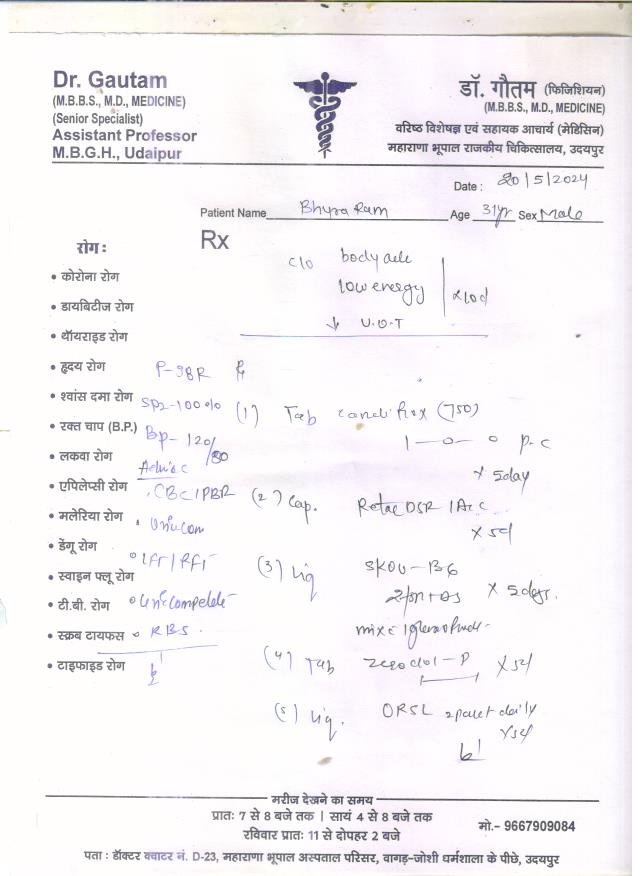 Dr. Gautam
(M.B.B.S., M.D., MEDICINE)
(Senior Specialist)
Assistant Professor
M.B.G.H., Udaipur
डॉ. गौतम (फिजिशियन)
(M.B.B.S., M.D., MEDICINE)
वरिष्ठ विशेषज्ञ एवं सहायक आचार्य (मेडिसिन)
महाराणा भूपाल राजकीय चिकित्सालय, उदयपुर
Date : 20/5/2024
Patient Name Bhyra Ram Age 31yr Sex Male
Rx
c/o body ache
low energy x10d
रोग :
• कोरोना रोग
• डायबिटीज रोग
• थॉयराइड रोग
• हृदय रोग
• श्वांस दमा रोग
• रक्त चाप (B.P.)
• लकवा रोग
• एपिलेप्सी रोग
• मलेरिया रोग
• डेंगू रोग
• स्वाइन फ्लू रोग
• टी.बी. रोग
• स्क्रब टायफस
• टाइफाइड रोग
P-98R
SPO2-100%
Bp-120/80
Advise
CBC/PBR
LFT/RFT
RBS
(1) Tab (750)
1-0-0 p.c
x 5day
(2) Cap.
x 5d
(3) Liq
x 5days.
(4) Tab zerodol-P x5d
(5) Liq. ORSL 2paket daily
x5d
मरीज देखने का समय
प्रातः 7 से 8 बजे तक | सायं 4 से 8 बजे तक
रविवार प्रातः 11 से दोपहर 2 बजे
मो.- 9667909084
पता : डॉक्टर क्वाटर नं. D-23, महाराणा भूपाल अस्पताल परिसर, वागड़-जोशी धर्मशाला के पीछे, उदयपुर